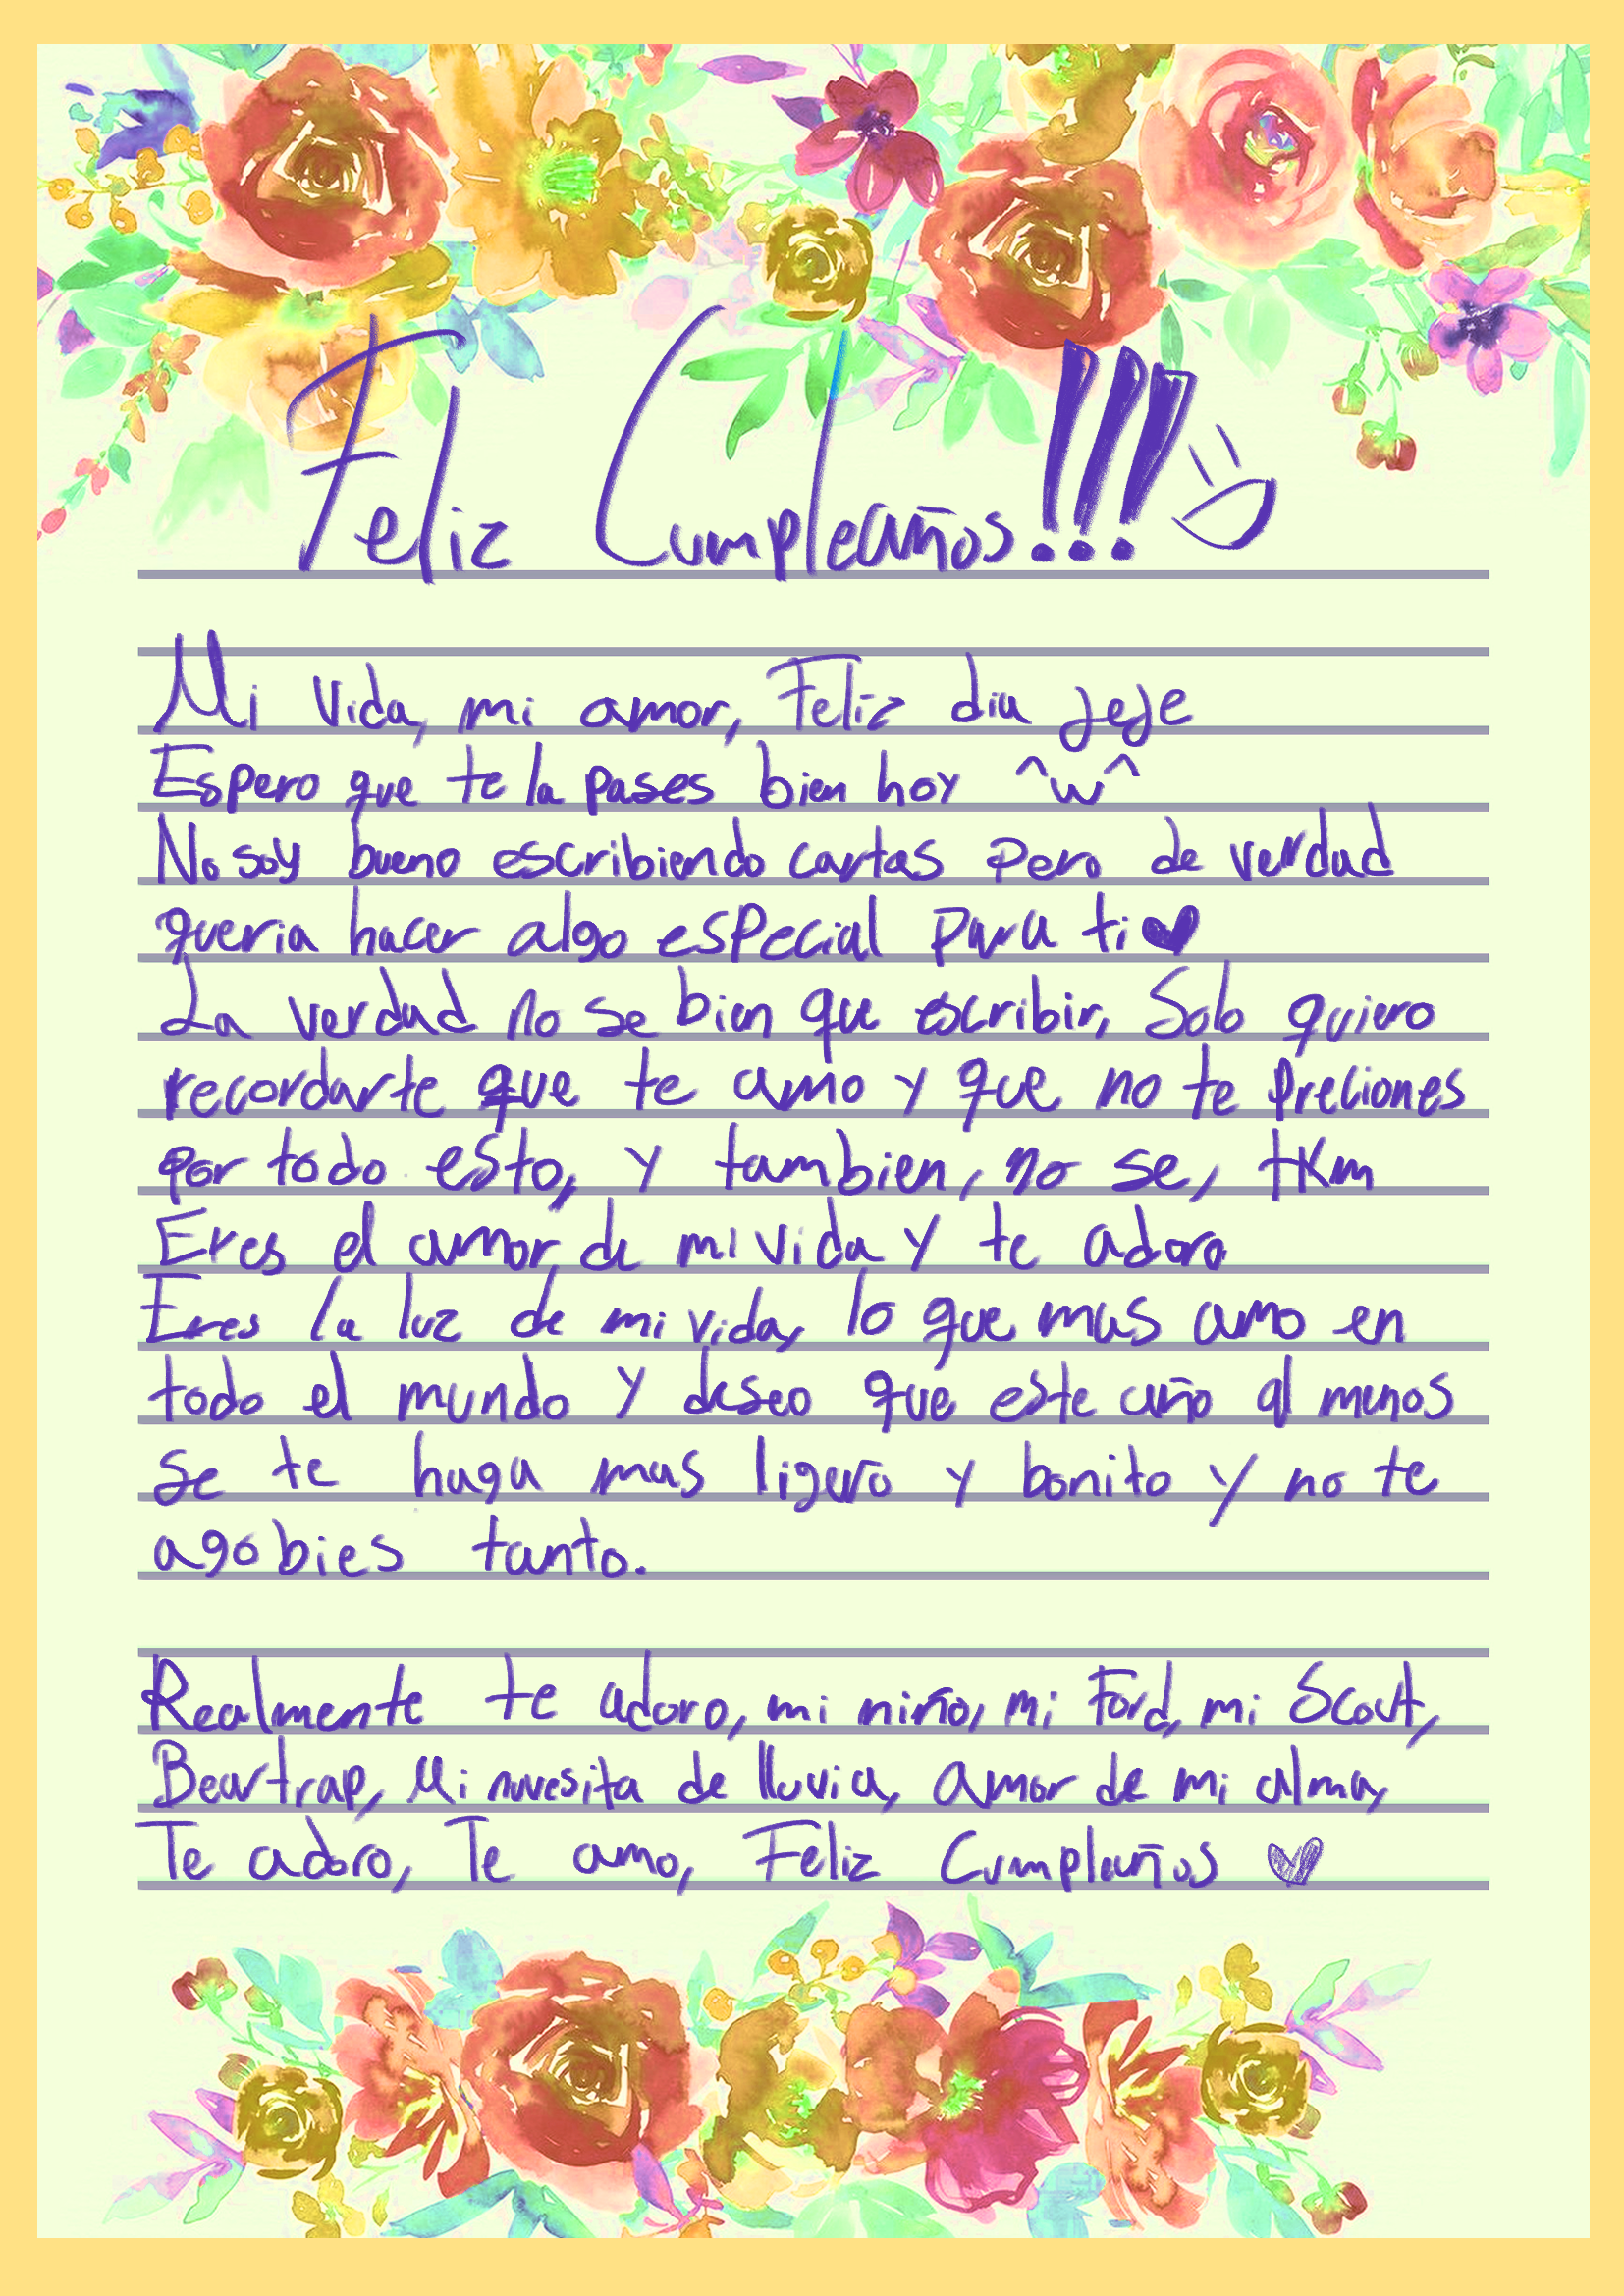 Feliz Cumpleaños!!! :D
Mi vida, mi amor, Feliz dia jeje
Espero que te la pases bien hoy ^w^
No soy bueno escribiendo cartas pero de verdad
queria hacer algo especial para ti ♥
La verdad no se bien que escribir, Solo quiero
recordarte que te amo y que no te preciones
por todo esto, y tambien, no se, tkm
Eres el amor de mi vida y te adoro
Eres la luz de mi vida, lo que mas amo en
todo el mundo y deseo que este año al menos
se te haga mas ligero y bonito y no te
agobies tanto.
Realmente te adoro, mi niño, mi Ford, mi Scout,
Beartrap, Mi nuvesita de lluvia, amor de mi alma,
Te adoro, Te amo, Feliz Cumpleaños ♥